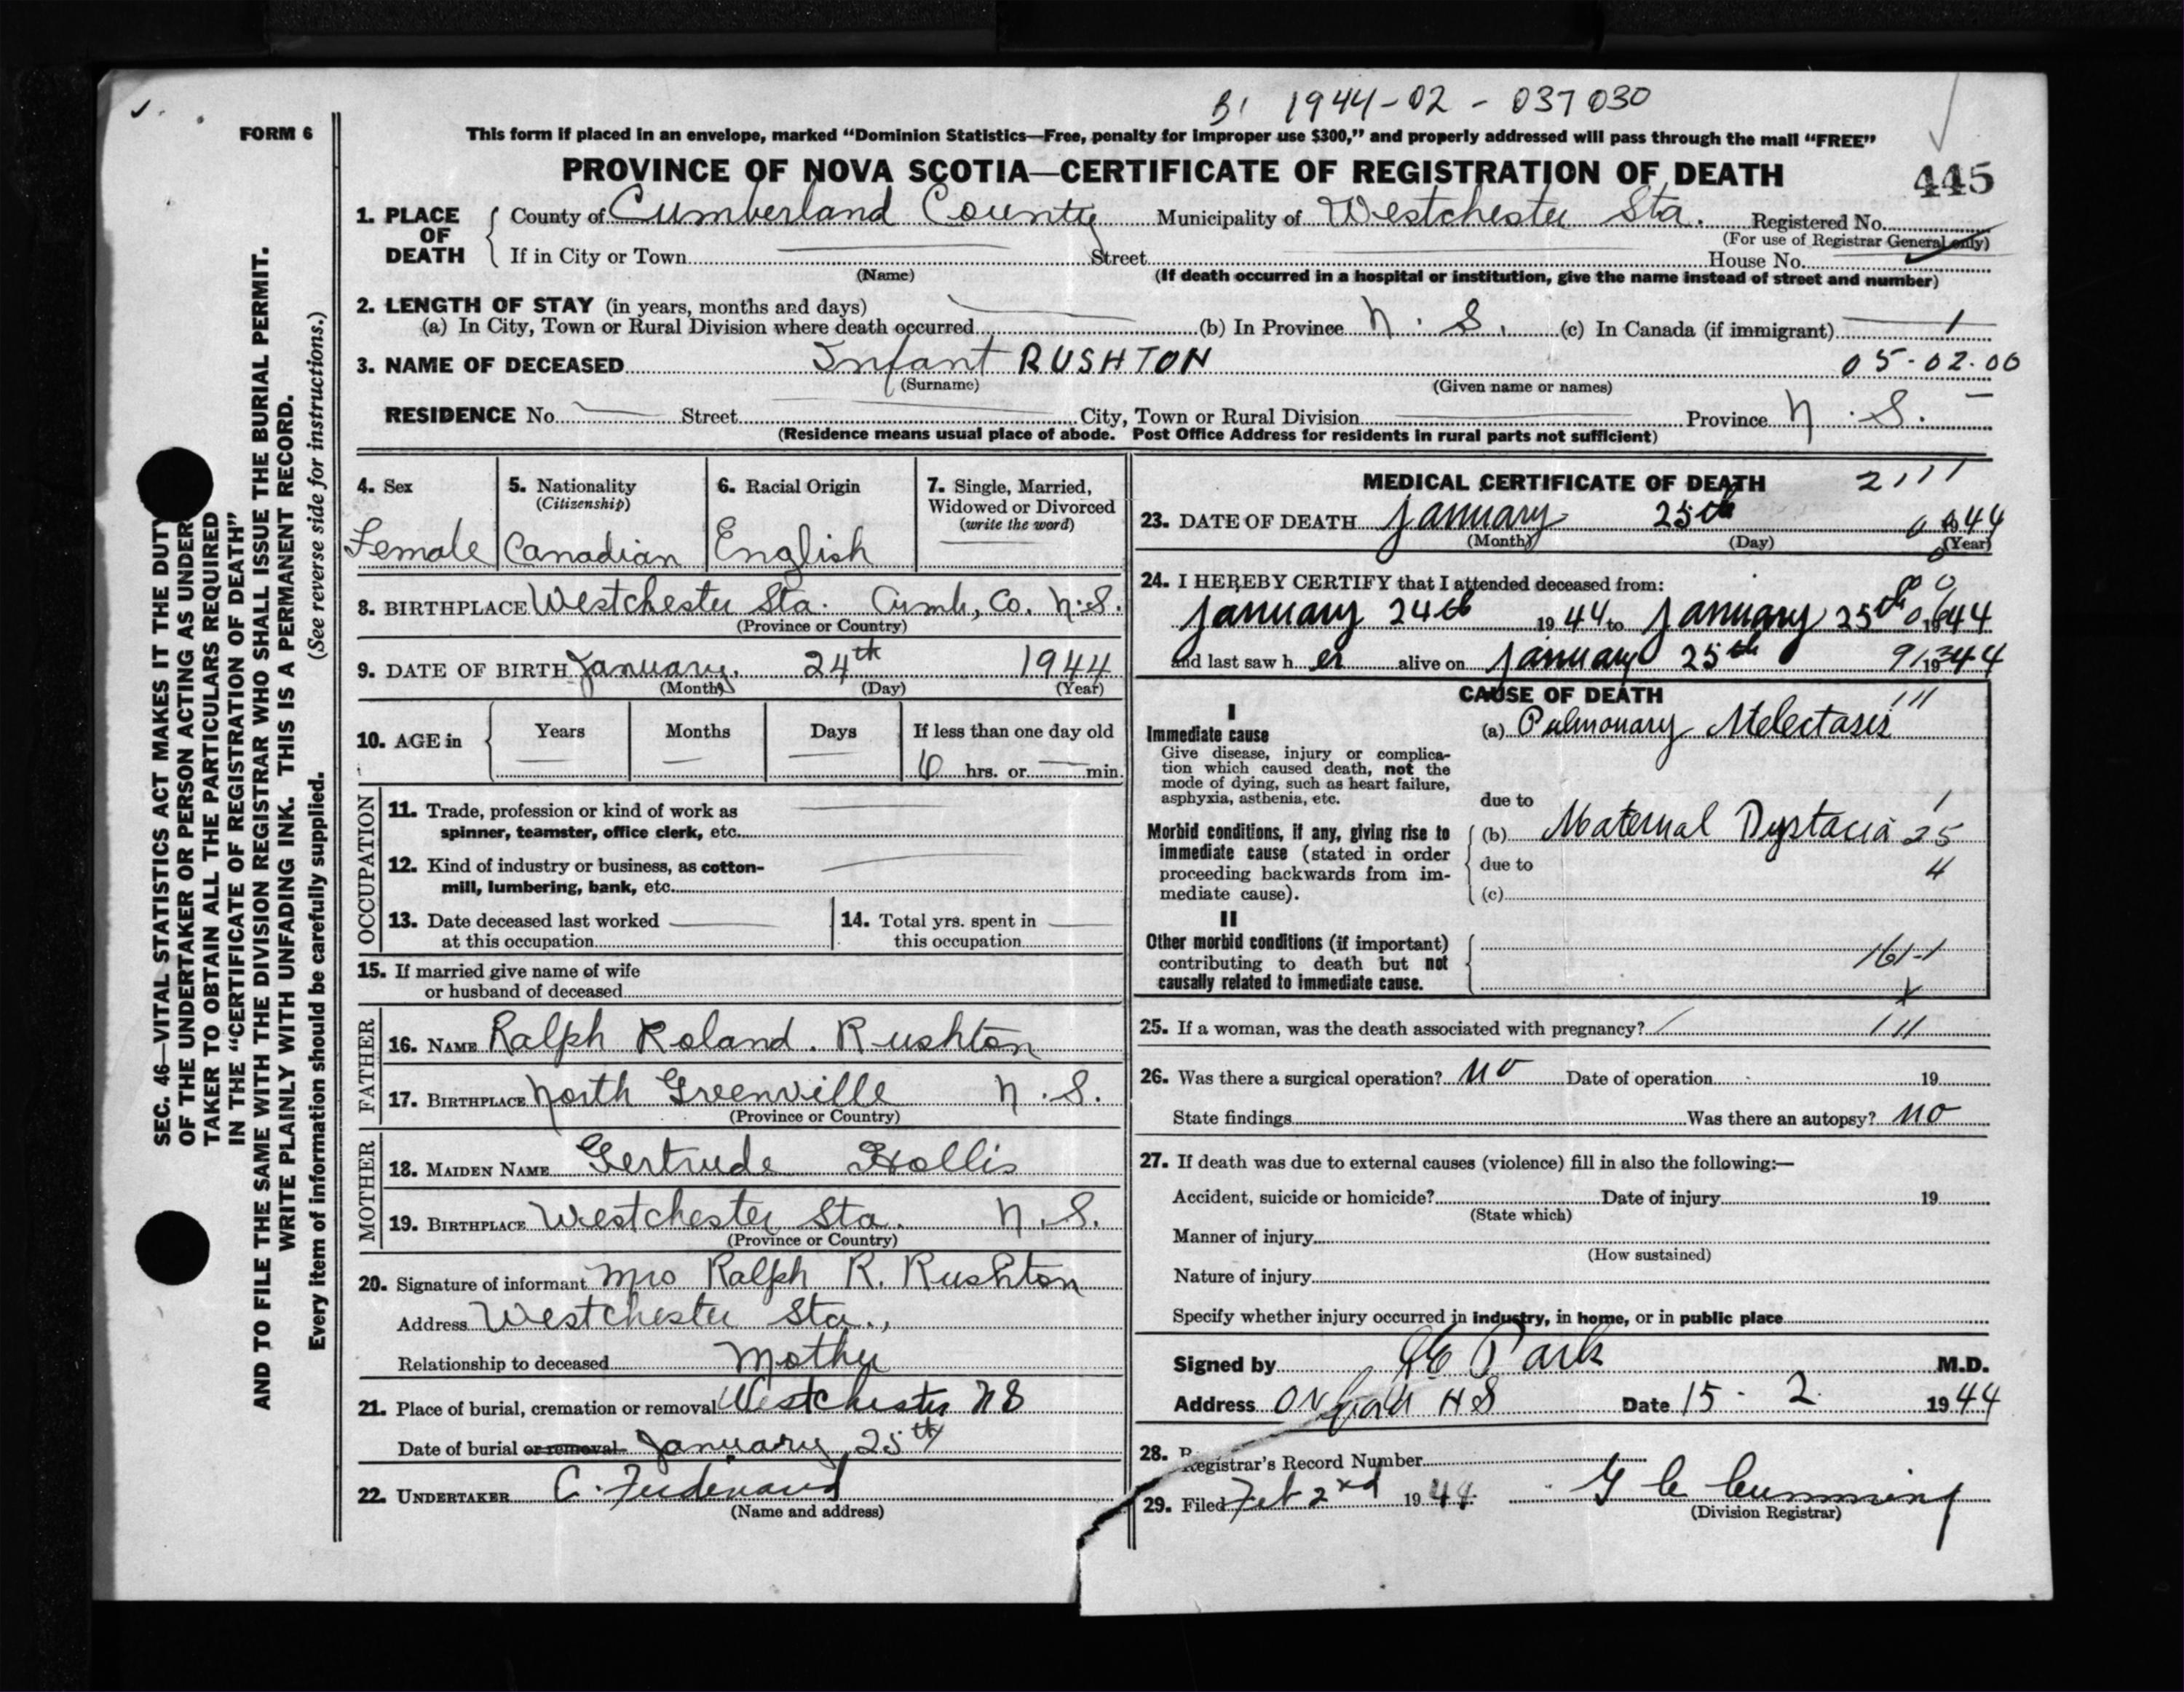 B! 1944-02-037030
FORM 6
This form if placed in an envelope, marked “Dominion Statistics—Free, penalty for improper use $300,” and properly addressed will pass through the mail “FREE”
PROVINCE OF NOVA SCOTIA—CERTIFICATE OF REGISTRATION OF DEATH
445
1. PLACE OF DEATH
County of Cumberland County Municipality of Westchester Sta. Registered No.
(For use of Registrar General only)
If in City or Town Street House No.
(Name) (If death occurred in a hospital or institution, give the name instead of street and number)
2. LENGTH OF STAY (in years, months and days)
(a) In City, Town or Rural Division where death occurred (b) In Province N. S. (c) In Canada (if immigrant)
3. NAME OF DECEASED Infant RUSHTON 05-02.00
(Surname) (Given name or names)
RESIDENCE No. Street City, Town or Rural Division Province N. S.
(Residence means usual place of abode. Post Office Address for residents in rural parts not sufficient)
4. Sex
Female
5. Nationality
(Citizenship)
Canadian
6. Racial Origin
English
7. Single, Married,
Widowed or Divorced
(write the word)
8. BIRTHPLACE Westchester Sta. Cumb, Co. N.S.
(Province or Country)
9. DATE OF BIRTH January, 24th 1944
(Month) (Day) (Year)
10. AGE in Years Months Days If less than one day old
hrs. or min.
OCCUPATION
11. Trade, profession or kind of work as
spinner, teamster, office clerk, etc.
12. Kind of industry or business, as cotton-
mill, lumbering, bank, etc.
13. Date deceased last worked
at this occupation
14. Total yrs. spent in
this occupation
15. If married give name of wife
or husband of deceased
FATHER
16. NAME Ralph Roland. Rushton
17. BIRTHPLACE North Greenville N. S.
(Province or Country)
MOTHER
18. MAIDEN NAME Gertrude Hollis
19. BIRTHPLACE Westchester Sta. N. S.
(Province or Country)
20. Signature of informant Mrs Ralph R. Rushton
Address Westchester Sta.,
Relationship to deceased Mother
21. Place of burial, cremation or removal Westchester NS
Date of burial or removal January 25th
22. UNDERTAKER C. Ferdinand
(Name and address)
MEDICAL CERTIFICATE OF DEATH 2111
23. DATE OF DEATH January 25th 44
(Month) (Day) (Year)
24. I HEREBY CERTIFY that I attended deceased from:
January 24th 1944 to January 25th 1944
and last saw her alive on January 25th 1944
CAUSE OF DEATH
I
Immediate cause
Give disease, injury or complica-
tion which caused death, not the
mode of dying, such as heart failure,
asphyxia, asthenia, etc.
(a) Pulmonary Atelectasis
due to
Morbid conditions, if any, giving rise to
immediate cause (stated in order
proceeding backwards from im-
mediate cause).
(b) Maternal Dystacia 25
due to 4
(c)
II
Other morbid conditions (if important)
contributing to death but not
causally related to immediate cause.
161-1
25. If a woman, was the death associated with pregnancy?
26. Was there a surgical operation? no Date of operation 19
State findings Was there an autopsy? no
27. If death was due to external causes (violence) fill in also the following:—
Accident, suicide or homicide? Date of injury 19
(State which)
Manner of injury
(How sustained)
Nature of injury
Specify whether injury occurred in industry, in home, or in public place
Signed by Park M.D.
Address Oxford NS Date 15 - 2 1944
28. Registrar's Record Number
29. Filed Feb 2nd 1944 G C Cumming
(Division Registrar)
SEC. 46—VITAL STATISTICS ACT MAKES IT THE DUTY
OF THE UNDERTAKER OR PERSON ACTING AS UNDER
TAKER TO OBTAIN ALL THE PARTICULARS REQUIRED
IN THE “CERTIFICATE OF REGISTRATION OF DEATH”
AND TO FILE THE SAME WITH THE DIVISION REGISTRAR WHO SHALL ISSUE THE BURIAL PERMIT.
WRITE PLAINLY WITH UNFADING INK. THIS IS A PERMANENT RECORD.
Every item of information should be carefully supplied. (See reverse side for instructions.)